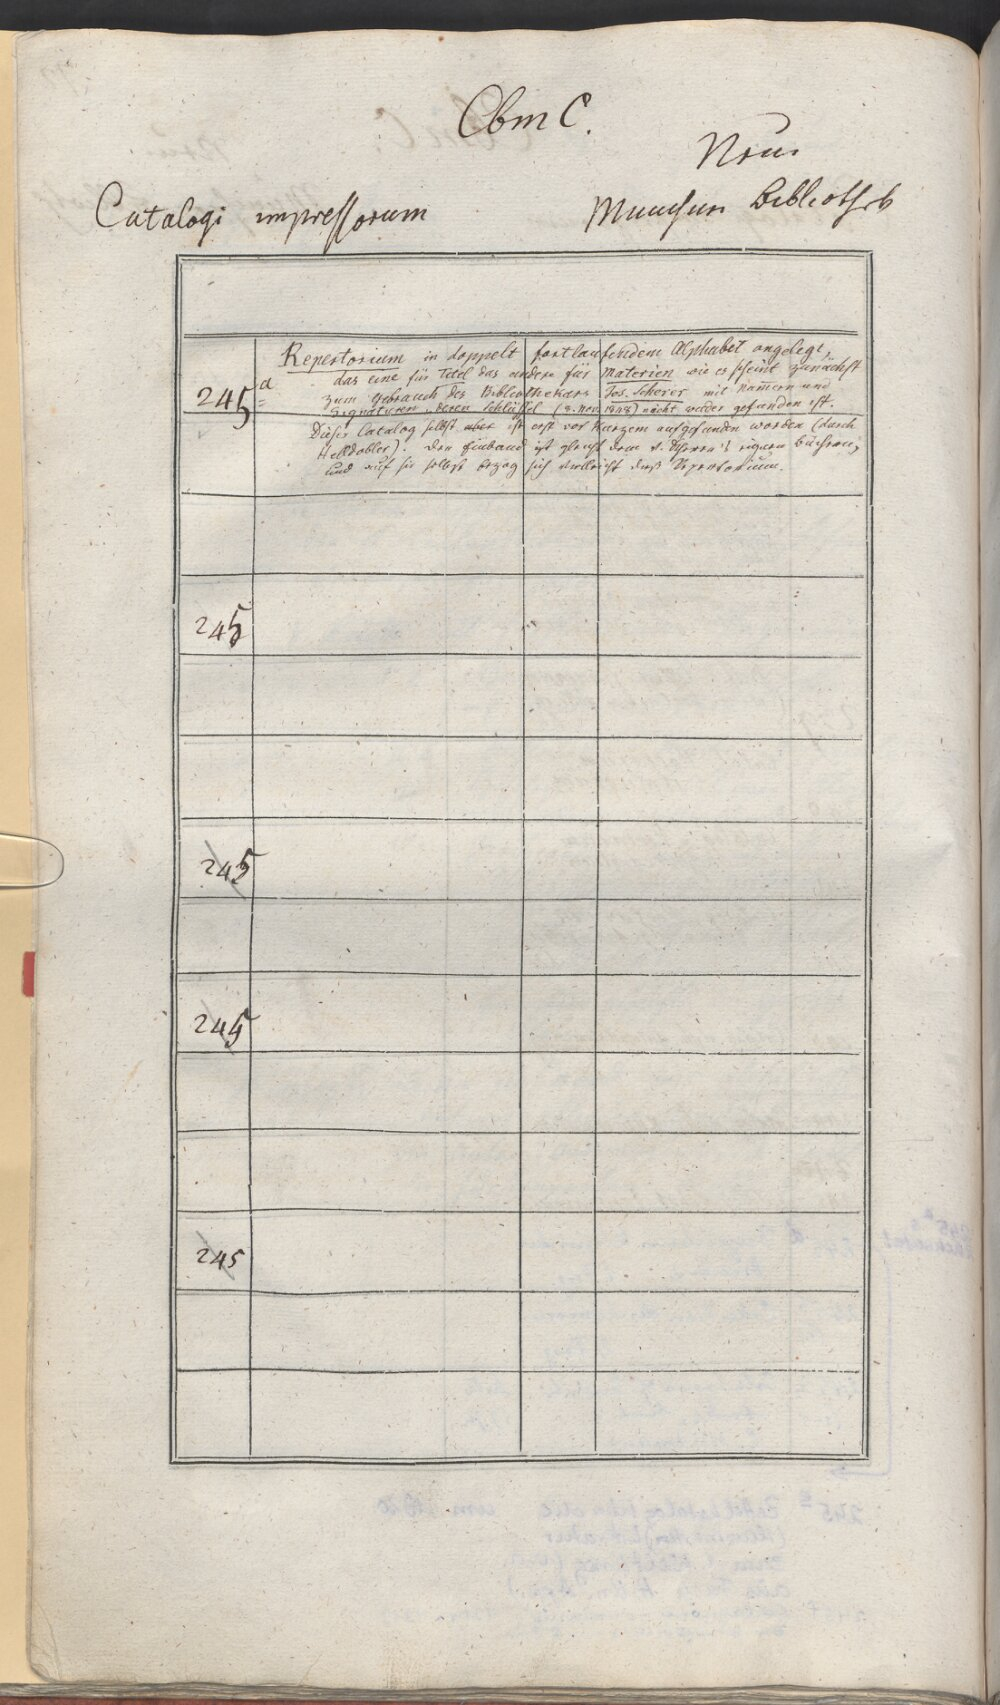 Cbm C.
Neue
Catalogi impressorum
Münchner Bibliothek
245 a Repertorium in doppelt fortlaufendem Alphabet angelegt,
das eine für Titel das andere für Materien wie es scheint zunächst
zum Gebrauch des Bibliothekars Jos. Scherer mit Nummern und
Signaturen, deren Schlüssel (8. Nov. 1848) nicht wieder gefunden ist.
Dieser Catalog selbst aber ist erst vor Kurzem aufgefunden worden (durch
Helldobler). Der Einband ist gleich dem v. Scherer's eigener Bücherey
und auf sie selbst bezog sich vielleicht dieß Repertorium.
245
245
245
245